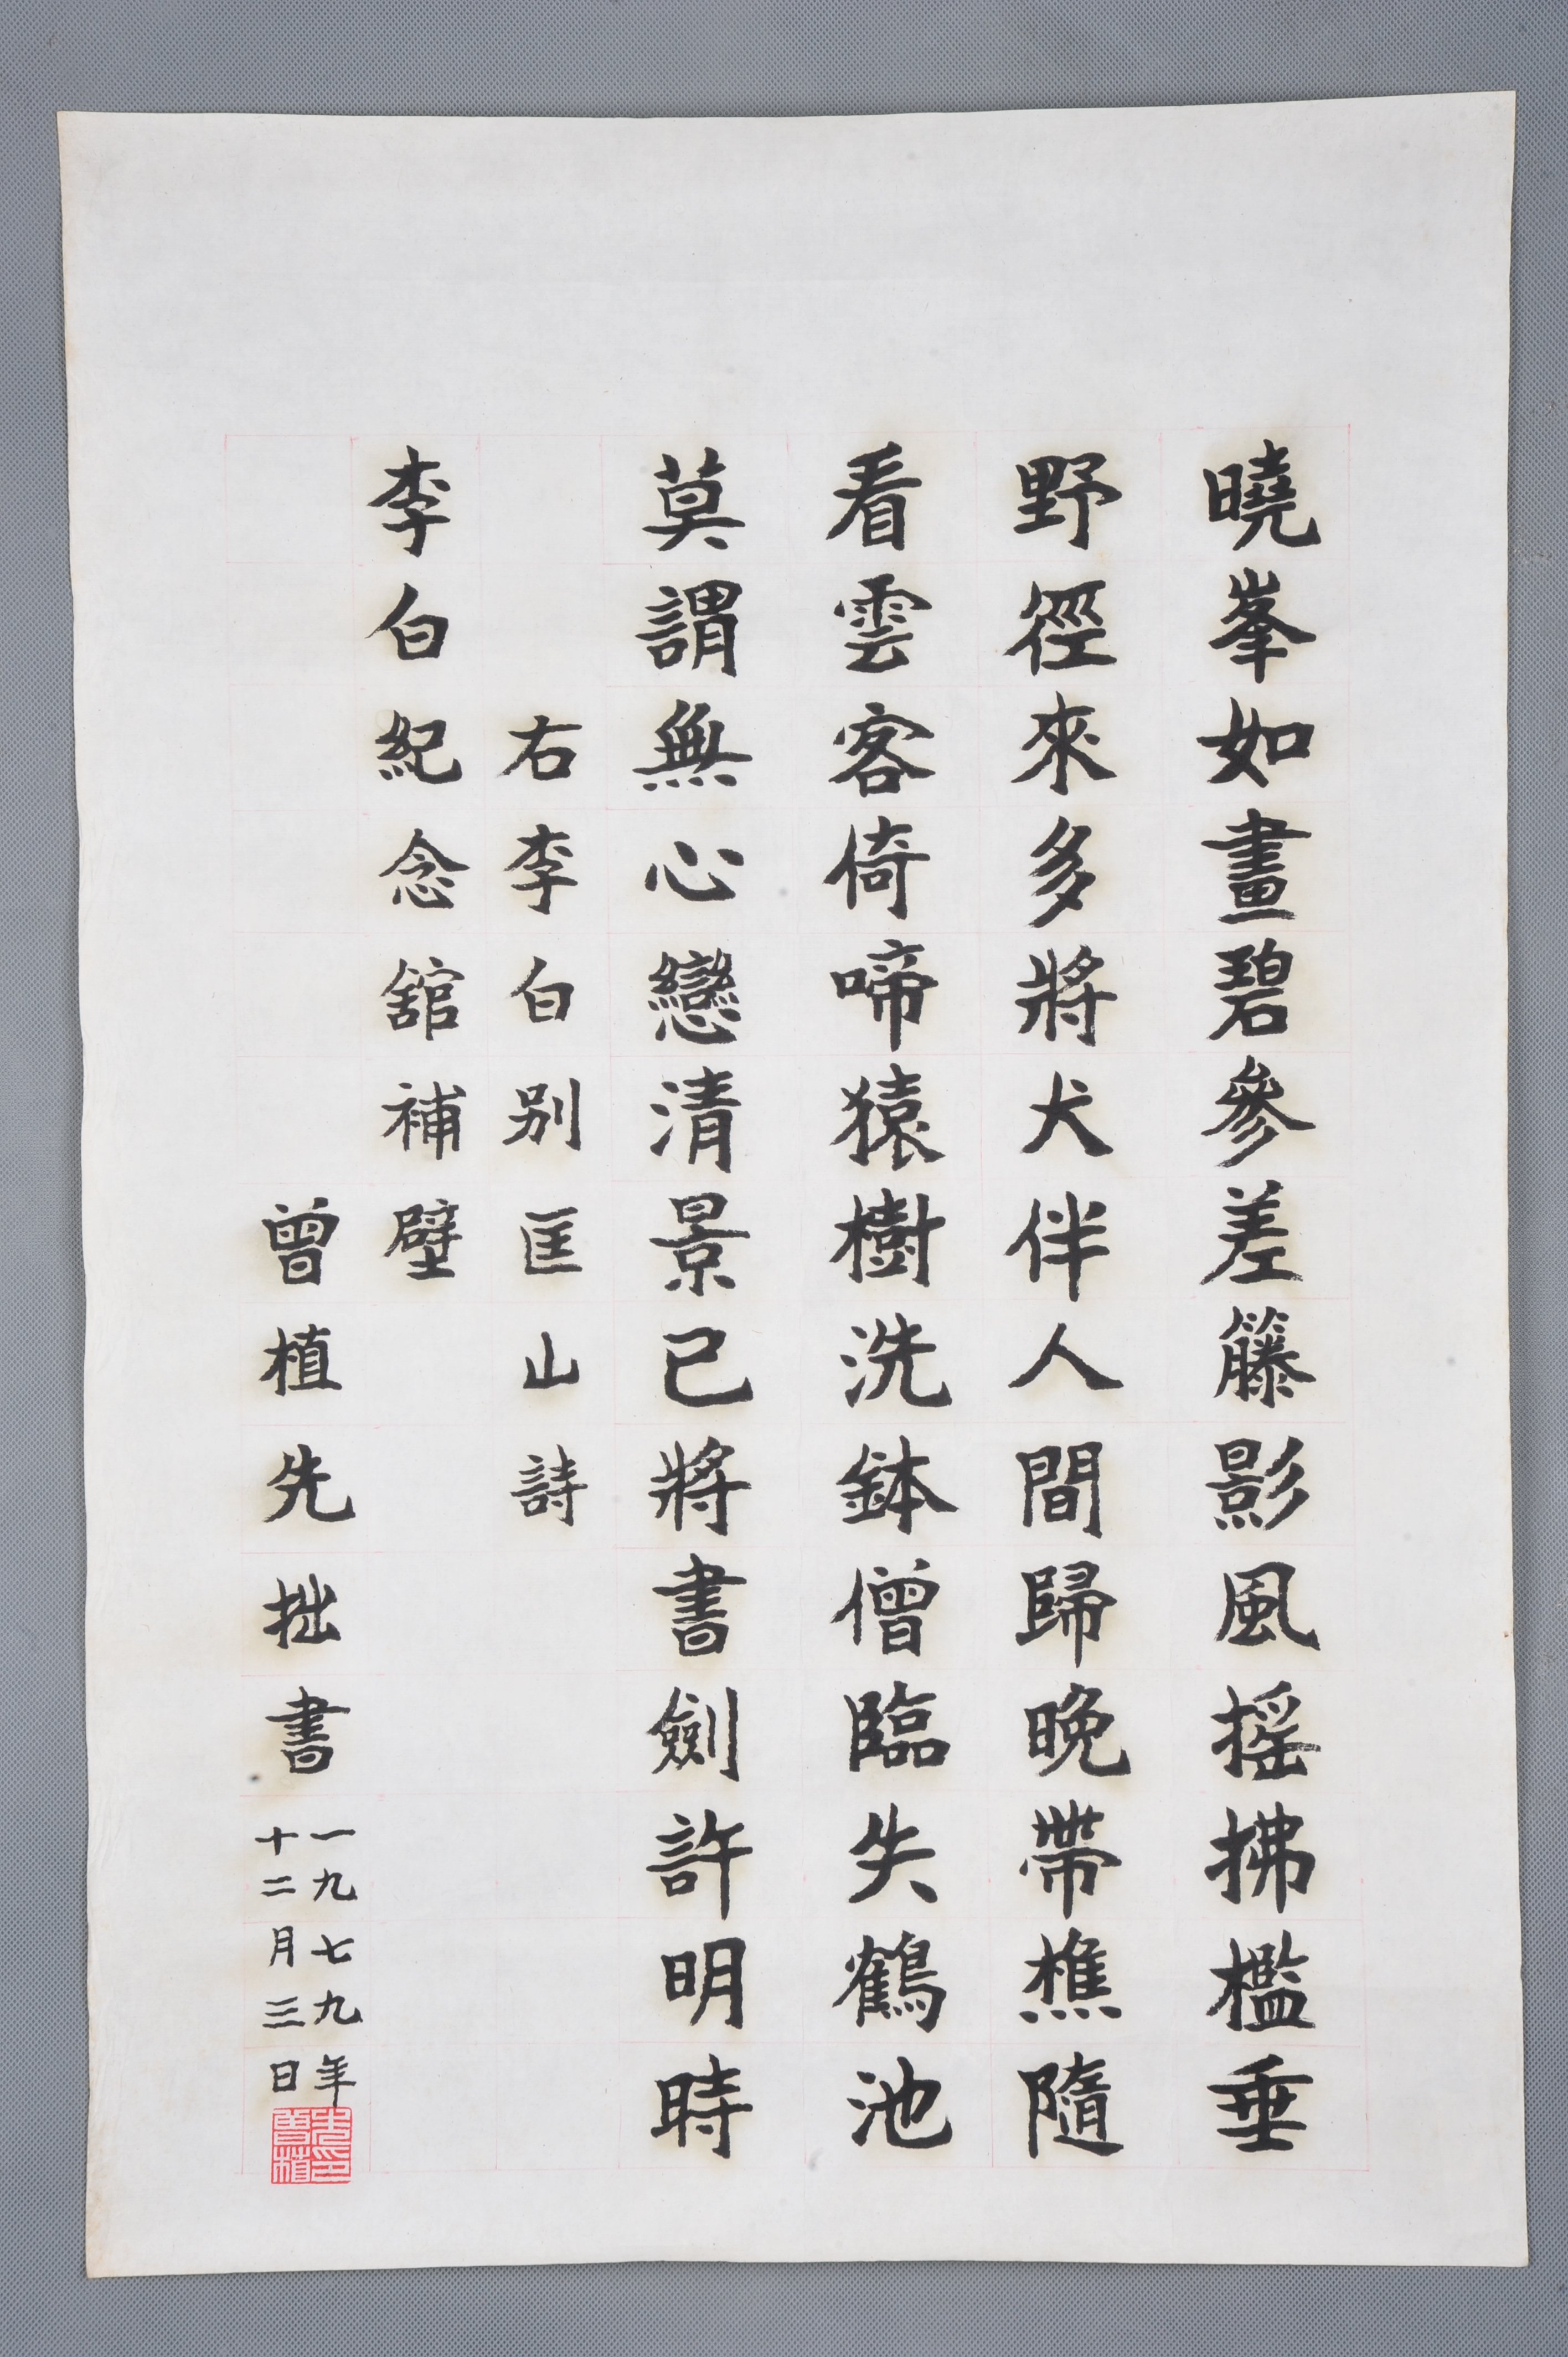 曉峯如畫碧參差籐影風摇拂檻垂
野徑來多將犬伴人間歸晚帶樵隨
看雲客倚啼猿樹洗鉢僧臨失鶴池
莫謂無心戀清景已將書劍許明時
右李白别匡山詩
李白紀念舘補壁
曾植先拙書
一九七九年
十二月三日
先印
曾植